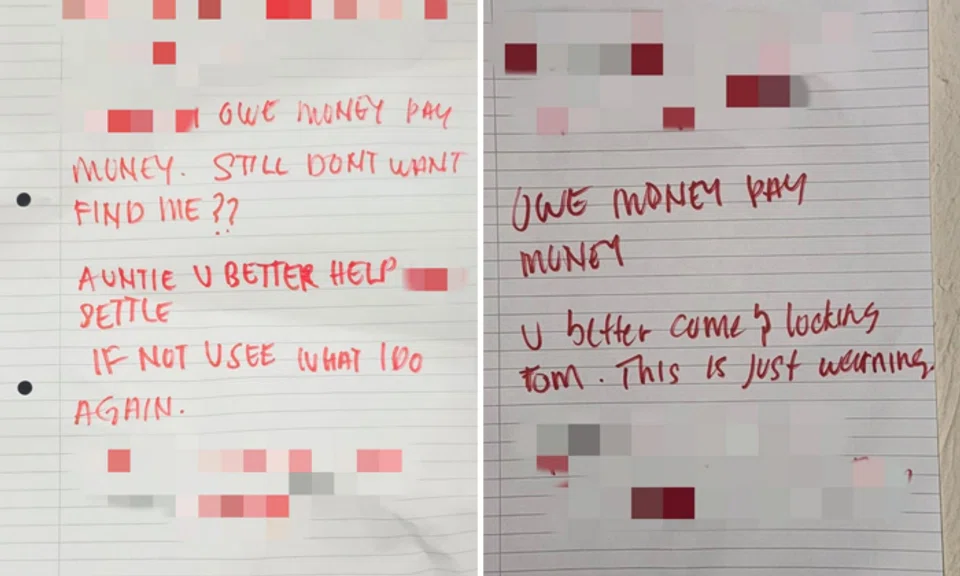 OWE MONEY PAY
MONEY. STILL DONT WANT
FIND ME??
AUNTIE U BETTER HELP
SETTLE
IF NOT U SEE WHAT I DO
AGAIN.
OWE MONEY PAY
MONEY
U better come looking
Tom. This is just warning.